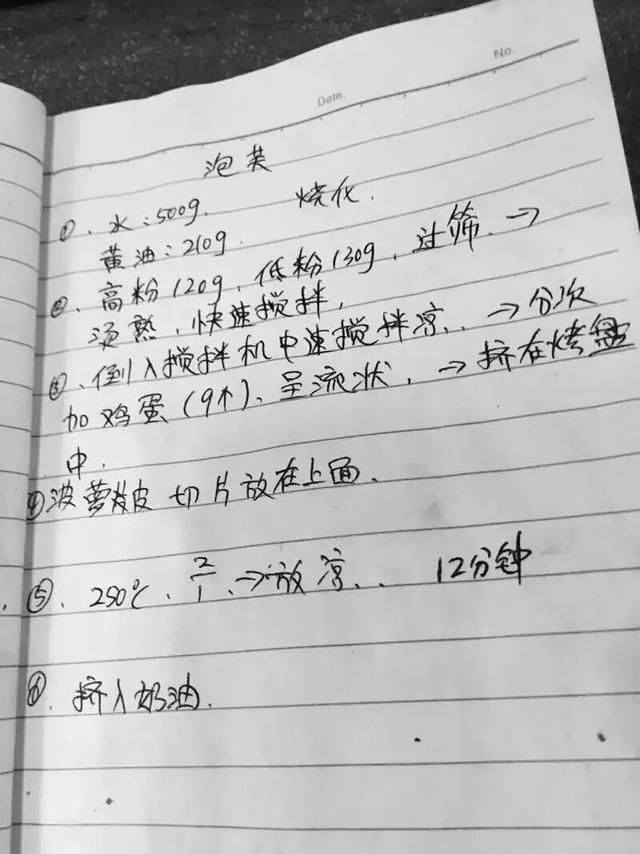 No.
Date.
泡芙
①、水:500g. 烧化.
黄油:210g.
②、高粉120g、低粉130g、过筛、→
烫熟、快速搅拌,
③、倒入搅拌机中速搅拌凉、. →分次
加鸡蛋(9个)、呈流状、→挤在烤盘
中.
④波萝皮 切片放在上面.
⑤、250℃、2/1、→放凉、. 12分钟
⑥、挤入奶油.